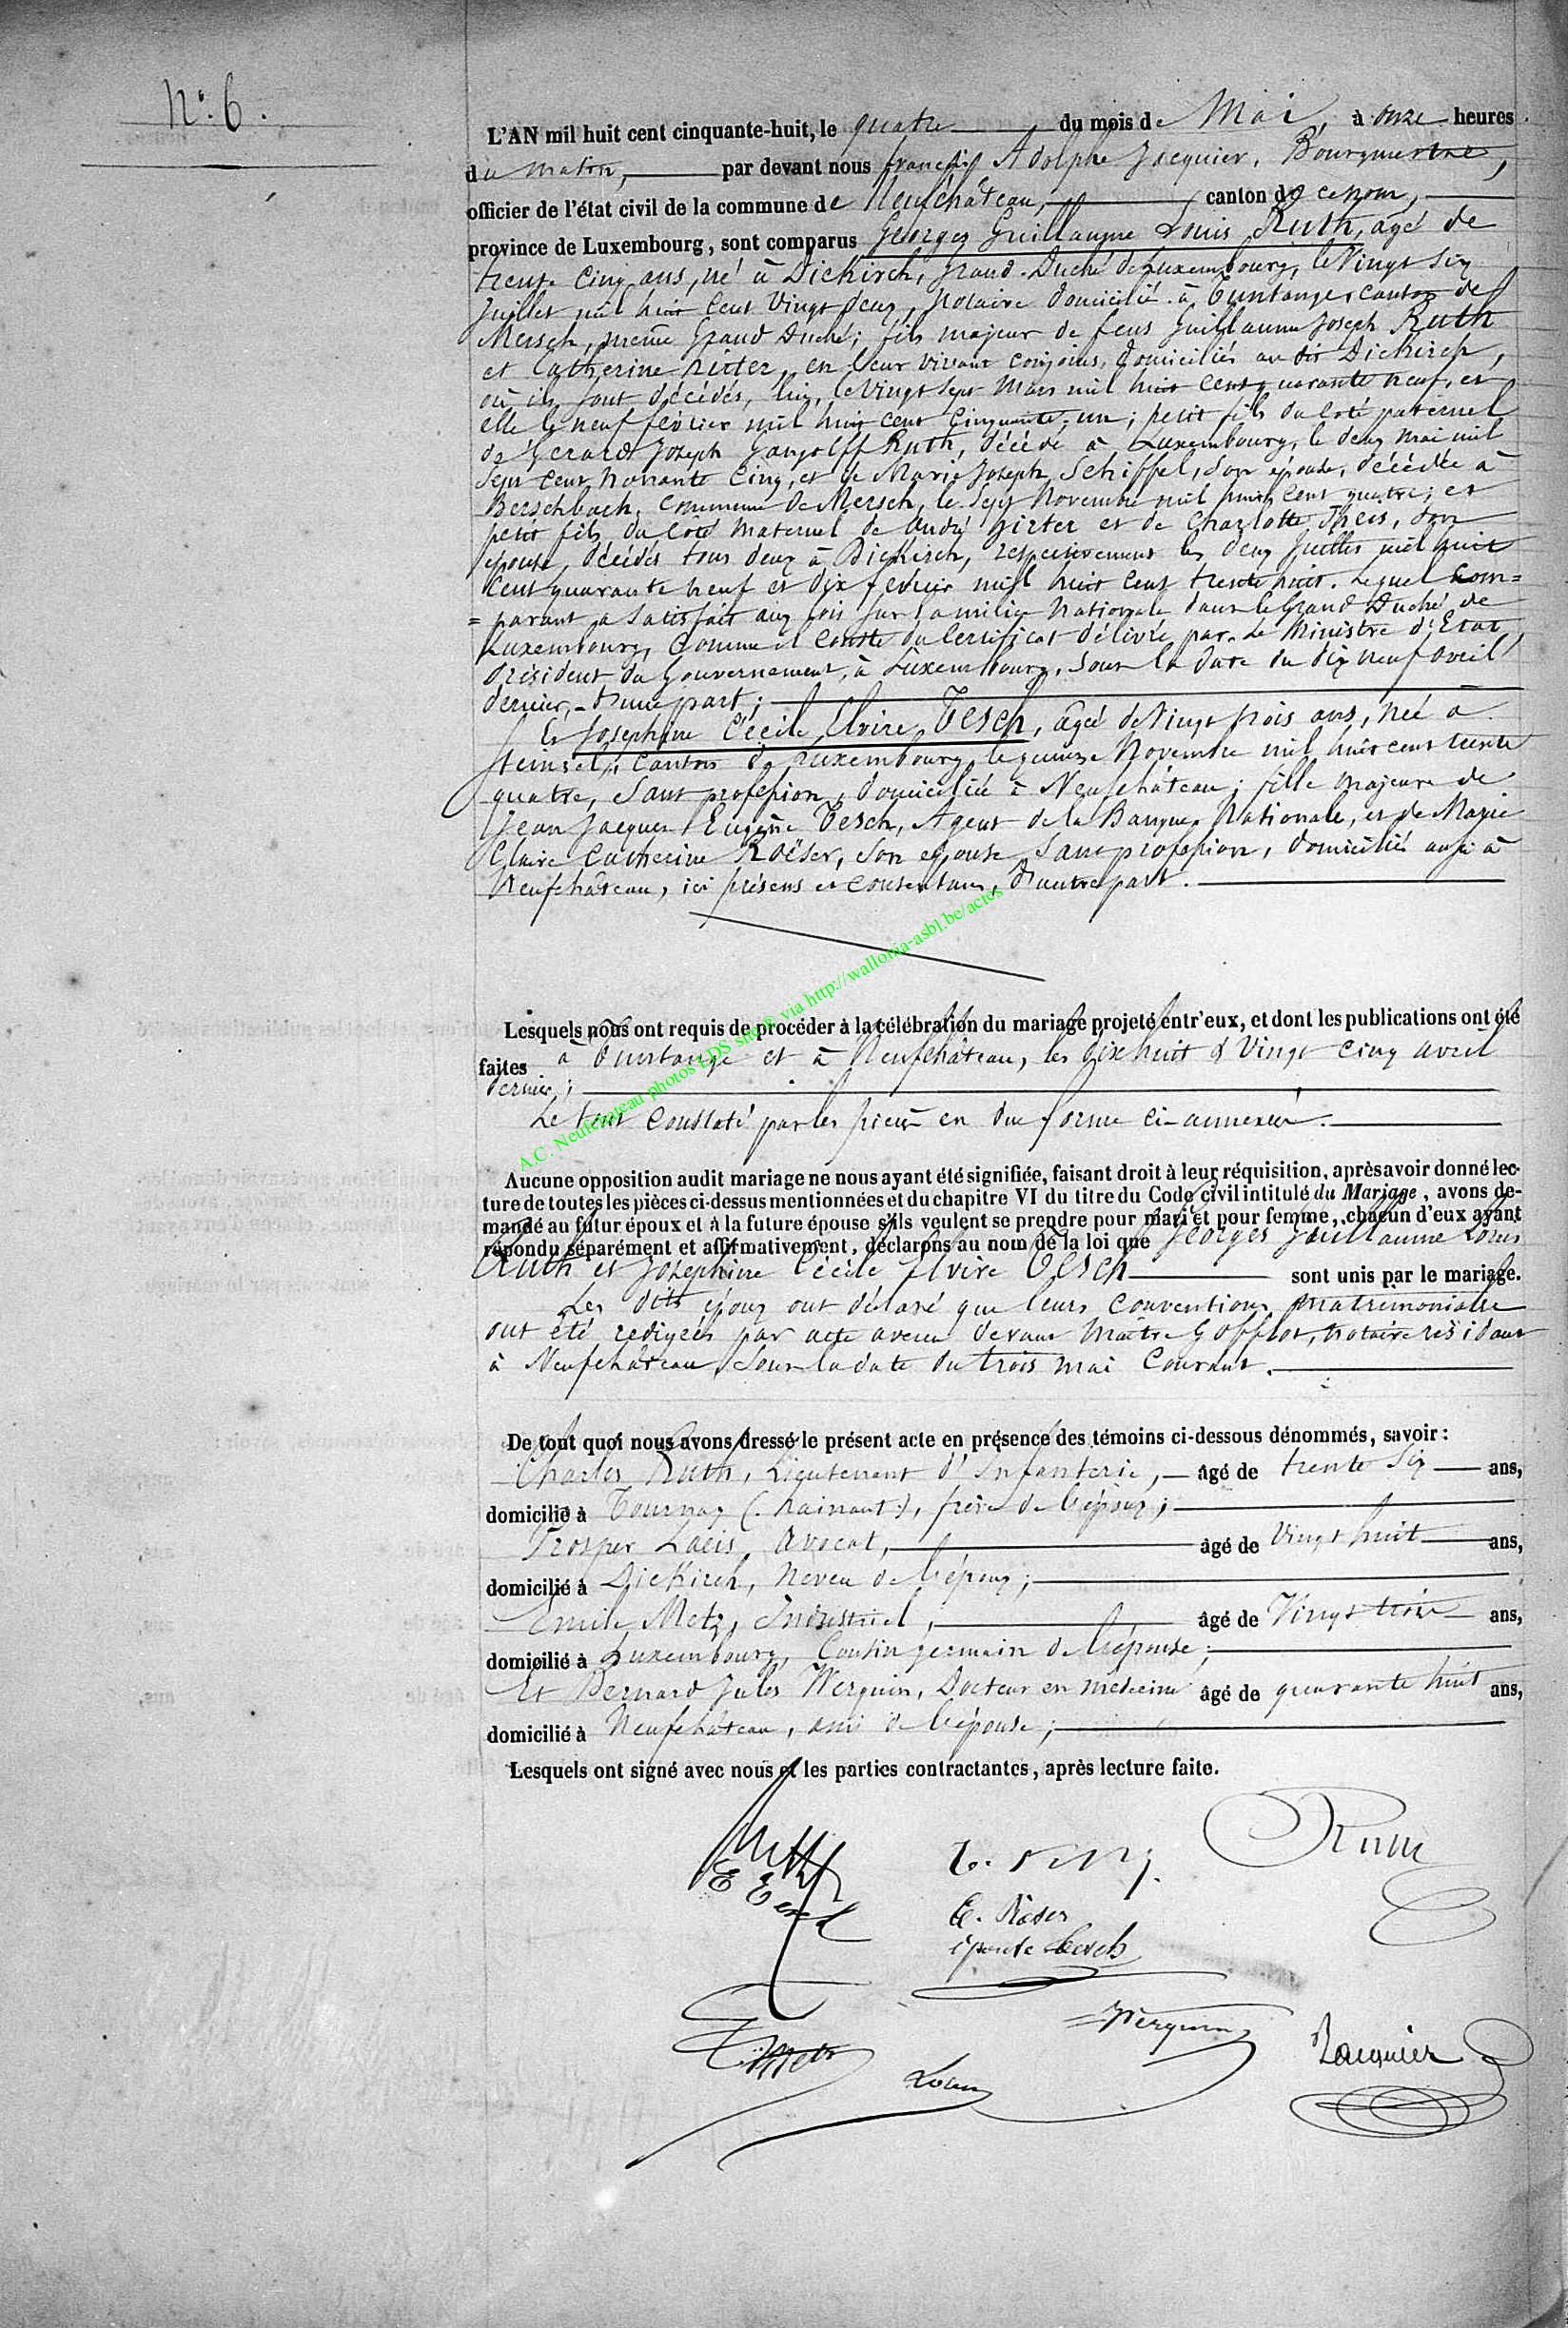 N° 6.
L'AN mil huit cent cinquante-huit, le quatre du mois de Mai, à onze heures
du matin, par devant nous françois Adolphe Jacquier, Bourgmestre,
officier de l'état civil de la commune de Neufchâteau, canton de ce nom,
province de Luxembourg, sont comparus Georges Guillaume Louis Ruth, agé de
trente cinq ans, né à Diekirch, Grand-Duché de Luxembourg, le Vingt six
Juillet mil huit cent Vingt deux, Notaire domicilié à Tuntange, canton de
Mersch, même Grand Duché; fils majeur de feus Guillaume Joseph Ruth
et Catherine Ritter, en leur vivant conjoins, domiciliés au dit Diekirch,
où ils sont décédés, lui, le Vingt sept Mars mil huit cent quarante neuf, et
elle le neuf février mil huit cent cinquante-un; petit fils du coté paternel
de Gerard Joseph Gangolff Ruth, décédé à Luxembourg, le deux mai mil
sept cent nonante cinq, et de Marie Joseph Schiffel, son épouse, décédée à
Berschbach, commune de Mersch, le sept Novembre mil huit cent quatre; et
petit fils du coté maternel de André Ritter et de Charlotte Theis, son
épouse, décédés tous deux à Diekirch, respectivement les deux Juillet mil huit
cent quarante neuf et dix fevrier mil huit cent trente huit. Lequel Com=
=parant a satisfait aux lois sur la milice Nationale dans le Grand Duché de
Luxembourg, comme il conste du Certificat délivré par le Ministre d'Etat,
Président du Gouvernement, à Luxembourg, sous la date du dix neuf avril
dernier, - d'une part;
Et Joséphine Cécile Elvire Tesch, âgée de Vingt trois ans, née à
Steinsel, Canton de Luxembourg, le quinze Novembre mil huit cent trente
quatre, sans profession, domiciliée à Neufchâteau; fille majeure de
Jean Jacques Eugène Tesch, Agent de la Banque Nationale, et de Marie
Claire Catherine Roëser, son epouse, sans profession, domiciliés aussi à
Neufchâteau, ici présens et consentans, d'autre part.
Lesquels nous ont requis de procéder à la célébration du mariage projeté entr'eux, et dont les publications ont été
faites à Tuntange et à Neufchâteau, les dix huit & Vingt cinq avril
dernier;
Le tout constaté par les pièces en due forme ci-annexées.
Aucune opposition audit mariage ne nous ayant été signifiée, faisant droit à leur réquisition, après avoir donné lec-
ture de toutes les pièces ci-dessus mentionnées et du chapitre VI du titre du Code civil intitulé du Mariage, avons de-
mandé au futur époux et à la future épouse s'ils veulent se prendre pour mari et pour femme, chacun d'eux ayant
répondu séparément et affirmativement, déclarons au nom de la loi que Georges Guillaume Louis
Ruth et Joséphine Cécile Elvire Tesch sont unis par le mariage.
Les dits époux ont déclaré que leurs conventions matrimoniales
ont été redigées par acte avenu devant Maître Gofflot, notaire résidant
à Neufchâteau, sous la date du trois mai courant.
De tout quoi nous avons dressé le présent acte en présence des témoins ci-dessous dénommés, savoir:
Charles Ruth, Lieutenant d'Infanterie, âgé de trente six ans,
domicilié à Tournay (hainaut), frère de l'époux;
Prosper Laeis, Avocat, âgé de Vingt huit ans,
domicilié à Diekirch, Neveu de l'époux;
Emile Metz, Industriel, âgé de Vingt trois ans,
domicilié à Luxembourg, Cousin germain de l'épouse;
Et Bernard Jules Werquin, Docteur en médecine âgé de quarante huit ans,
domicilié à Neufchâteau, ami de l'épouse;
Lesquels ont signé avec nous et les parties contractantes, après lecture faite.
Ruth
C. Röser
épouse Tesch
Werquin
E Metz
Jacquier
A.C. Neufchateau photos LDS site © via http://wallonia-asbl.be/actes